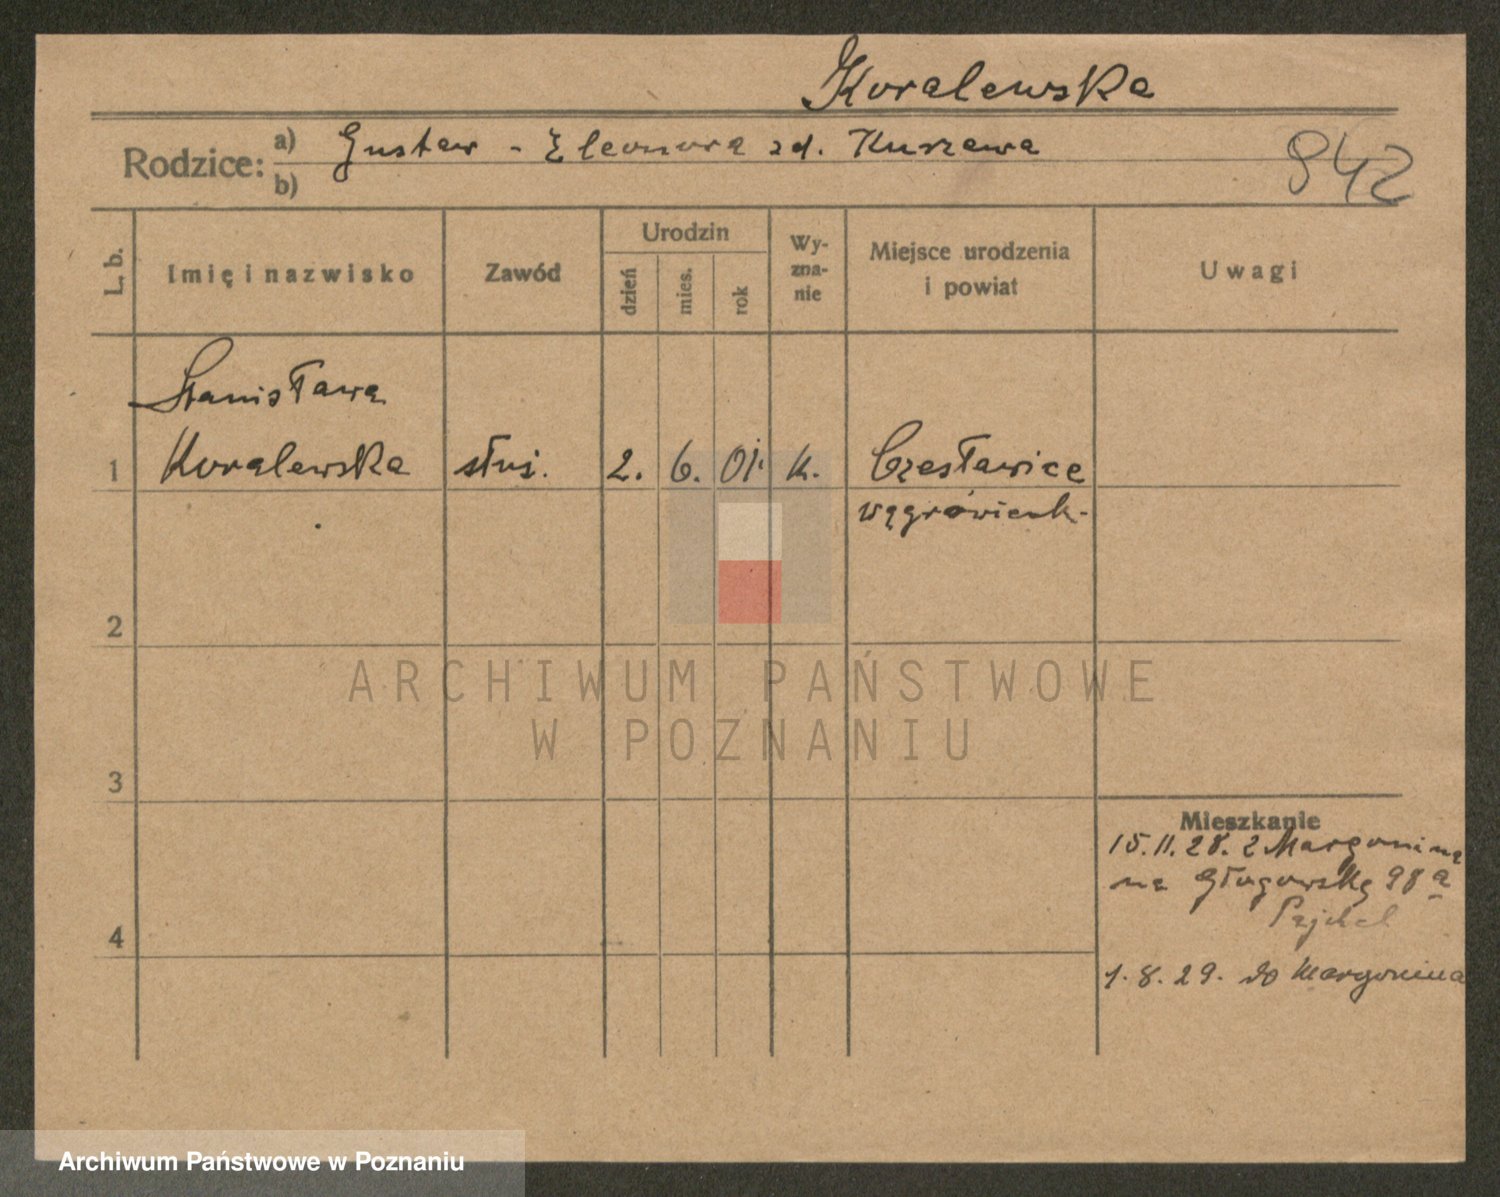 Koralewska
Rodzice: a) Gustaw - Eleonora zd. Kurzawa
b)
942
L. b.
Imię i nazwisko
Zawód
Urodzin
dzień
mies.
rok
Wy-
zna-
nie
Miejsce urodzenia
i powiat
Uwagi
Stanisława
1 Koralewska służ. 2. 6. 01. k. Czesławice
wągrowieck.
2
3
4
Mieszkanie
15.11.28. z Margonina
na Głogowską 98a
1.8.29. do Margonina
ARCHIWUM PAŃSTWOWE
W POZNANIU
Archiwum Państwowe w Poznaniu